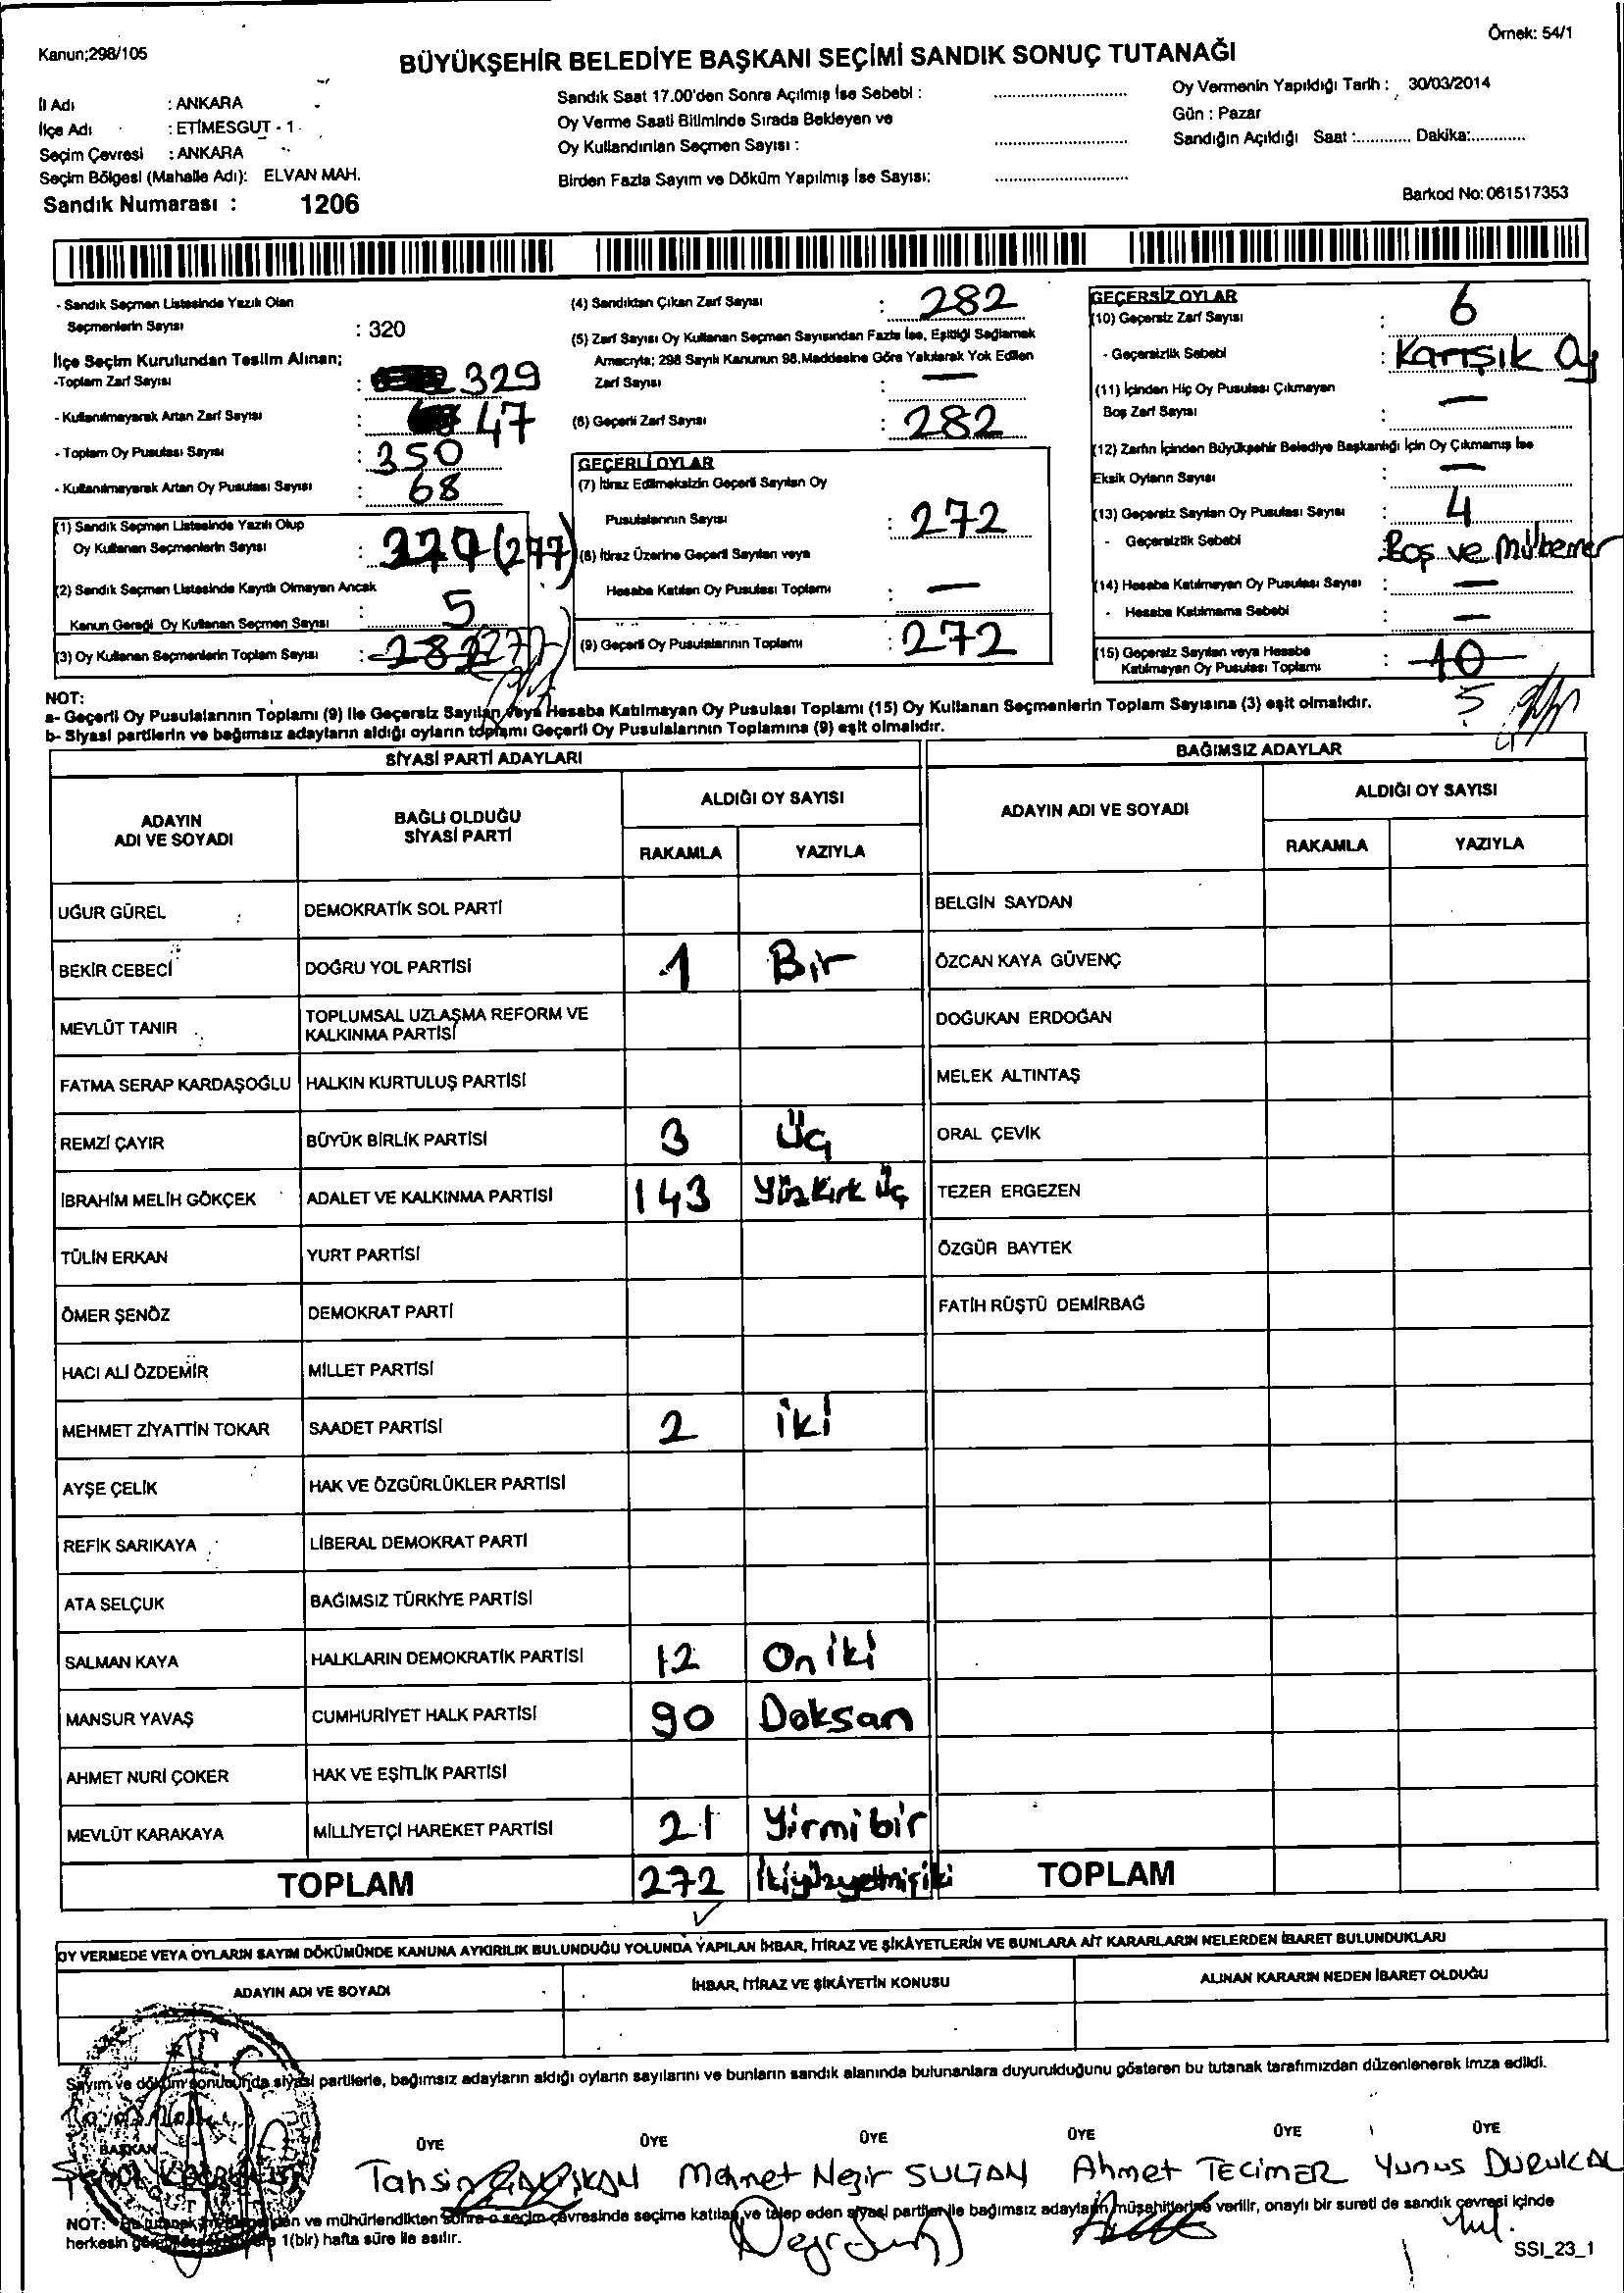 Kanun;298/105
Örnek: 54/1
BÜYÜKŞEHİR BELEDİYE BAŞKANI SEÇİMİ SANDIK SONUÇ TUTANAĞI
İl Adı : ANKARA
İlçe Adı : ETİMESGUT - 1
Seçim Çevresi : ANKARA
Seçim Bölgesi (Mahalle Adı): ELVAN MAH.
Sandık Numarası : 1206
Sandık Saat 17.00'den Sonra Açılmış İse Sebebi :
Oy Verme Saati Bitiminde Sırada Bekleyen ve
Oy Kullandırılan Seçmen Sayısı :
Birden Fazla Sayım ve Döküm Yapılmış İse Sayısı:
Oy Vermenin Yapıldığı Tarih : 30/03/2014
Gün : Pazar
Sandığın Açıldığı Saat :............ Dakika:............
Barkod No: 061517353
- Sandık Seçmen Listesinde Yazılı Olan
Seçmenlerin Sayısı : 320
İlçe Seçim Kurulundan Teslim Alınan;
-Toplam Zarf Sayısı : 329
- Kullanılmayarak Artan Zarf Sayısı : 47
- Toplam Oy Pusulası Sayısı : 350
- Kullanılmayarak Artan Oy Pusulası Sayısı : 68
(1) Sandık Seçmen Listesinde Yazılı Olup
Oy Kullanan Seçmenlerin Sayısı : (277)
(2) Sandık Seçmen Listesinde Kayıtlı Olmayan Ancak
Kanun Gereği Oy Kullanan Seçmen Sayısı : 5
(3) Oy Kullanan Seçmenlerin Toplam Sayısı :
(4) Sandıktan Çıkan Zarf Sayısı : 282
(5) Zarf Sayısı Oy Kullanan Seçmen Sayısından Fazla İse, Eşitliği Sağlamak
Amacıyla; 298 Sayılı Kanunun 98.Maddesine Göre Yakılarak Yok Edilen
Zarf Sayısı : —
(6) Geçerli Zarf Sayısı : 282
GEÇERLİ OYLAR
(7) İtiraz Edilmeksizin Geçerli Sayılan Oy
Pusulalarının Sayısı : 272
(8) İtiraz Üzerine Geçerli Sayılan veya
Hesaba Katılan Oy Pusulası Toplamı : —
(9) Geçerli Oy Pusulalarının Toplamı : 272
GEÇERSİZ OYLAR
(10) Geçersiz Zarf Sayısı : 6
- Geçersizlik Sebebi : Karışık Oy
(11) İçinden Hiç Oy Pusulası Çıkmayan
Boş Zarf Sayısı : —
(12) Zarfın İçinden Büyükşehir Belediye Başkanlığı İçin Oy Çıkmamış İse
Eksik Oyların Sayısı : —
(13) Geçersiz Sayılan Oy Pusulası Sayısı : 4
- Geçersizlik Sebebi : Boş ve
(14) Hesaba Katılmayan Oy Pusulası Sayısı : —
- Hesaba Katılmama Sebebi : —
(15) Geçersiz Sayılan veya Hesaba
Katılmayan Oy Pusulası Toplamı : 10
5
NOT:
a- Geçerli Oy Pusulalarının Toplamı (9) ile Geçersiz Sayılan veya Hesaba Katılmayan Oy Pusulası Toplamı (15) Oy Kullanan Seçmenlerin Toplam Sayısına (3) eşit olmalıdır.
b- Siyasi partilerin ve bağımsız adayların aldığı oyların toplamı Geçerli Oy Pusulalarının Toplamına (9) eşit olmalıdır.
SİYASİ PARTİ ADAYLARI
BAĞIMSIZ ADAYLAR
ADAYIN
ADI VE SOYADI
BAĞLI OLDUĞU
SİYASİ PARTİ
ALDIĞI OY SAYISI
RAKAMLA YAZIYLA
ADAYIN ADI VE SOYADI
ALDIĞI OY SAYISI
RAKAMLA YAZIYLA
UĞUR GÜREL DEMOKRATİK SOL PARTİ BELGİN SAYDAN
BEKİR CEBECİ DOĞRU YOL PARTİSİ 1 Bir ÖZCAN KAYA GÜVENÇ
MEVLÜT TANIR TOPLUMSAL UZLAŞMA REFORM VE
KALKINMA PARTİSİ DOĞUKAN ERDOĞAN
FATMA SERAP KARDAŞOĞLU HALKIN KURTULUŞ PARTİSİ MELEK ALTINTAŞ
REMZİ ÇAYIR BÜYÜK BİRLİK PARTİSİ 3 Üç ORAL ÇEVİK
İBRAHİM MELİH GÖKÇEK ADALET VE KALKINMA PARTİSİ 143 Yüzkırk üç TEZER ERGEZEN
TÜLİN ERKAN YURT PARTİSİ ÖZGÜR BAYTEK
ÖMER ŞENÖZ DEMOKRAT PARTİ FATİH RÜŞTÜ DEMİRBAĞ
HACI ALİ ÖZDEMİR MİLLET PARTİSİ
MEHMET ZİYATTİN TOKAR SAADET PARTİSİ 2 iki
AYŞE ÇELİK HAK VE ÖZGÜRLÜKLER PARTİSİ
REFİK SARIKAYA LİBERAL DEMOKRAT PARTİ
ATA SELÇUK BAĞIMSIZ TÜRKİYE PARTİSİ
SALMAN KAYA HALKLARIN DEMOKRATİK PARTİSİ 12 On iki
MANSUR YAVAŞ CUMHURİYET HALK PARTİSİ 90 Doksan
AHMET NURİ ÇOKER HAK VE EŞİTLİK PARTİSİ
MEVLÜT KARAKAYA MİLLİYETÇİ HAREKET PARTİSİ 21 Yirmi bir
TOPLAM 272 İkiyüzyetmişiki TOPLAM
OY VERMEDE VEYA OYLARIN SAYIM DÖKÜMÜNDE KANUNA AYKIRILIK BULUNDUĞU YOLUNDA YAPILAN İHBAR, İTİRAZ VE ŞİKÂYETLERİN VE BUNLARA AİT KARARLARIN NELERDEN İBARET BULUNDUKLARI
ADAYIN ADI VE SOYADI İHBAR, İTİRAZ VE ŞİKÂYETİN KONUSU ALINAN KARARIN NEDEN İBARET OLDUĞU
Sayım ve döküm sonucunda siyasi partilerle, bağımsız adayların aldığı oyların sayılarını ve bunların sandık alanında bulunanlara duyurulduğunu gösteren bu tutanak tarafımızdan düzenlenerek imza edildi.
BAŞKAN ÜYE ÜYE ÜYE ÜYE ÜYE ÜYE
Tahsin ÇALIŞKAN Mehmet Nezir SULTAN Ahmet TECİMER Yunus DURUKAL
NOT: ve mühürlendikten sonra o seçim çevresinde seçime katılan ve talep eden siyasi partiler ile bağımsız adayların müşahitlerine verilir, onaylı bir sureti de sandık çevresi içinde
herkesin 1(bir) hafta süre ile asılır.
SSI_23_1